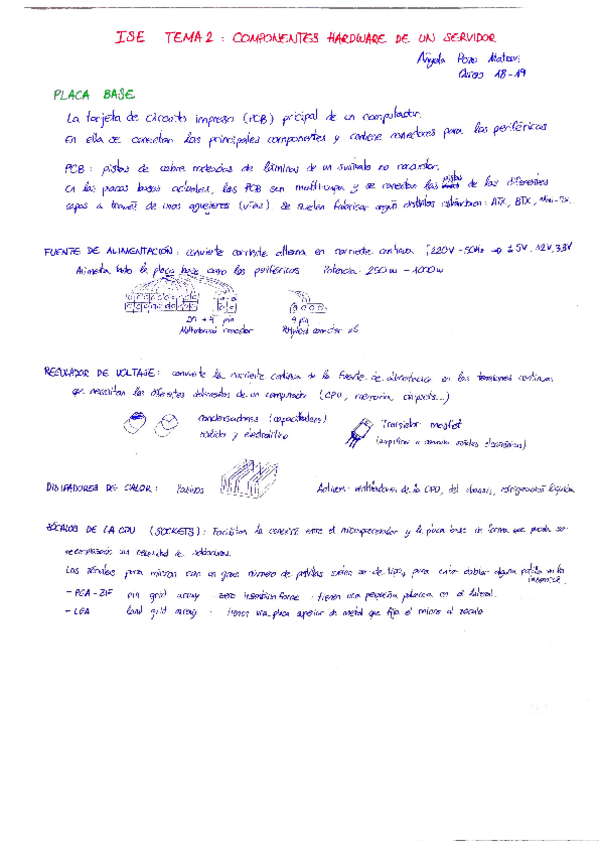 ISE TEMA 2 : COMPONENTES HARDWARE DE UN SERVIDOR
Ángela Pozo
Curso 18-19
PLACA BASE
La tarjeta de circuito impreso (PCB) pricipal de un computador.
En ella se conectan los principales componentes y contiene conectores para los periféricos
PCB : pistas de cobre rodeadas de láminas de un sustrato no conductor.
En las placas bases actuales, las PCB son multicapa y se conectan las pistas de las diferentes
capas a través de unos agujeros (vías) Se suelen fabricar según distintos estándares : ATX, BTX, Mini-ITX.
FUENTE DE ALIMENTACIÓN : convierte corriente alterna en corriente continua 220V - 50Hz → ± 5V 12V, 3,3V
Alimenta toda la placa base como los periféricos Potencia 250w - 1000w
20 + 4 pin
Motherboard connector
4 pin
connector x6
REGULADOR DE VOLTAJE : convierte la corriente continua de la fuente de alimentación en las tensiones continuas
que necesitan los diferentes elementos de un computador (CPU, memoria, chipsets...)
condensadores (capacitors)
sólido y electrolítico
Transistor mosfet
(amplificar o conmutar señales electrónicas)
DISIPADORES DE CALOR : Pasivos
Activos : ventiladores de la CPU, del chassis, refrigeración líquida
ZÓCALOS DE LA CPU (SOCKETS) : Facilitan la conexión entre el microprocesador y la placa base de forma que pueda ser
reemplazado sin necesidad de soldaduras.
Los zócalos para micros con un gran número de patillas suelen ser de tipo, para evitar doblar alguna patilla en la
inserción.
- PGA - ZIF pin grid array - zero insertion force : tienen una pequeña palanca en el lateral.
- LGA land grid array : tienen una placa superior de metal que fija el micro al zócalo